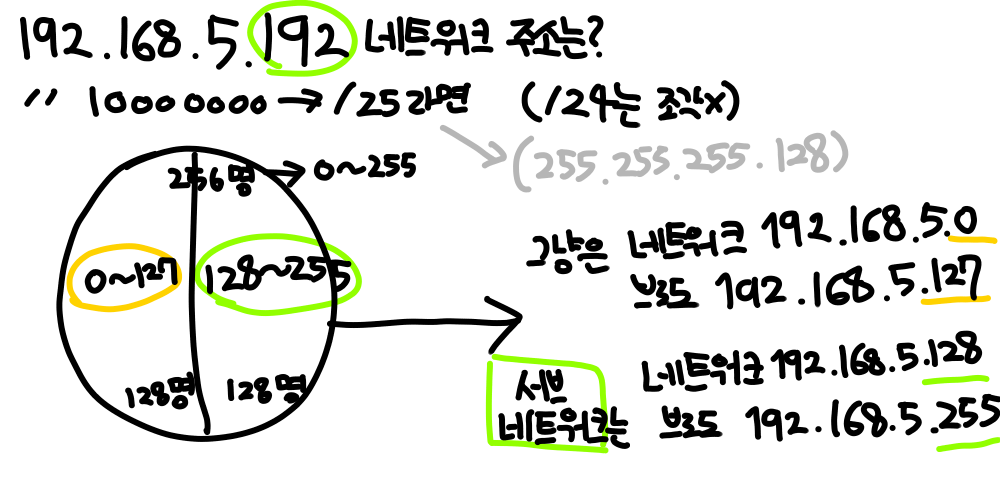 192.168.5.192 네트워크 주소는?
〃 10000000 → /25라면 (/24는 조각x)
(255.255.255.128)
256명 → 0~255
0~127
128~255
128명
128명
그냥은 네트워크 192.168.5.0
브로드 192.168.5.127
서브
네트워크는
네트워크 192.168.5.128
브로드 192.168.5.255